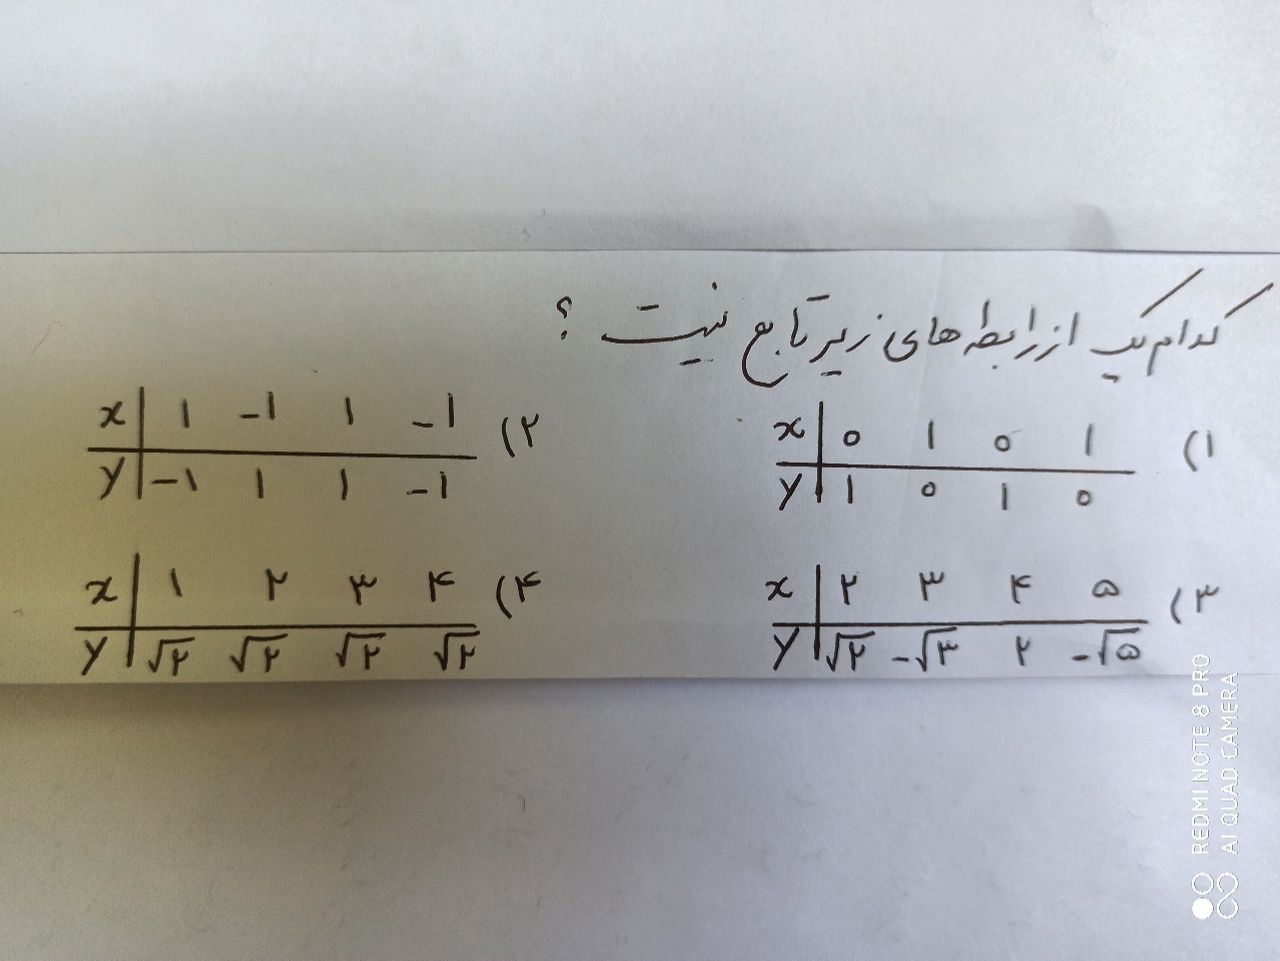 کدام یک از رابطه‌های زیر تابع نیست ؟
۱)
x | ۰ ۱ ۰ ۱
y | ۱ ۰ ۱ ۰
۲)
x | ۱ -۱ ۱ -۱
y | -۱ ۱ ۱ -۱
۳)
x | ۲ ۳ ۴ ۵
y | √۲ -√۳ ۲ -√۵
۴)
x | ۱ ۲ ۳ ۴
y | √۲ √۲ √۲ √۲
REDMI NOTE 8 PRO
AI QUAD CAMERA